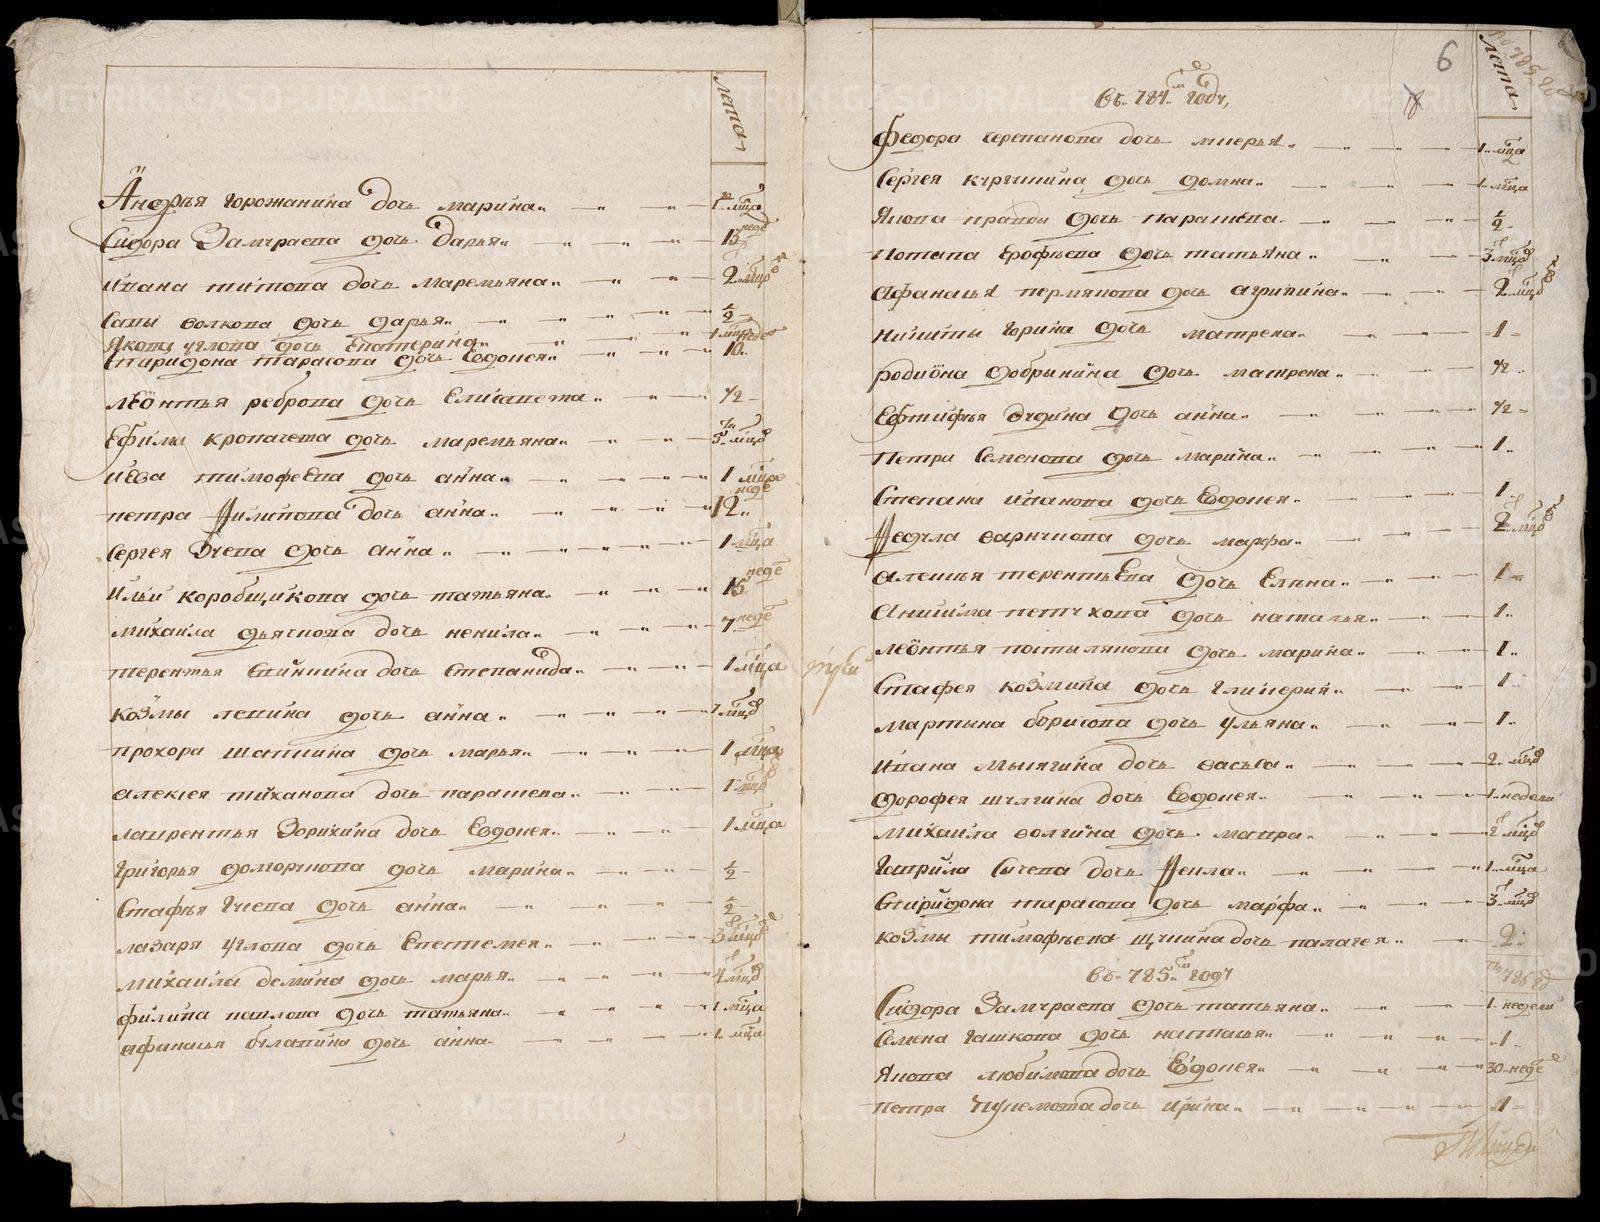 лета
Андрѣя горожанина дочь марина 1 мца
Сидора Замураева дочь дарья 15 неде
ивана титова дочь маремьяна 2 мцо
Савы волкова дочь дарья ½
Якова углова дочь Екатерина 1
Спиридона тарасова дочь Евдокея 10
леонтья реброва дочь Елисавета ½
Ефима кропачева дочь маремьяна 5 мцо
иева тимофеева дочь анна 1 мца
петра Филипова дочь анна 12 неде
Сергея дочь анна 1 мца
ильи коробщикова дочь татьяна 15 неде
михаила дьячкова дочь ненила 7 неде
терентья дочь Степанида 1 мца
козмы лепина дочь анна мцо
прохора шапкина дочь марья 1 мца
алексея тиханова дочь парасковья 1 мцо
лаврентья Зорихина дочь Евдокея 1 мца
григорья долгорукова дочь марина ½
Стафья Гнева дочь анна ½
лазаря углова дочь 3 мцо
михаила демина дочь марья 4 мцо
филипа павлова дочь татьяна 1 мца
афанасья булатина дочь анна 1 мца
6
лета
въ 784м году
Федора черепанова дочь 1 мца
Сергея кургинина дочь домна 1 мца
Якова правды дочь ½
Потапа Ерофѣева дочь татьяна 3 мцо
афанасья пермякова дочь агрипина 2 мцо
никиты горина дочь матрена 1
родиона добрынина дочь матрена ½
Ефтифья дудина дочь анна ½
петра Семенова дочь марина 1
Степана иванова дочь Евдокея 1
Федула дочь марфа 2 мцо
алексья терентьева дочь Елена 1
анисима петухова дочь наталья 1
леонтья дочь марина 1
Стафея козмина дочь гликерия 1
мартына борисова дочь ульяна 1
ивана мылягина дочь васьса 2 мцо
дорофея шулгина дочь Евдокея 1 недели
михаила волгина дочь мавра 2 мцо
гаврила Сычева дочь Фекла 1 мца
Спиридона тарасова дочь марфа 3 мцо
козмы тимофѣева дочь палагея 2
въ 785м году
Сидора Замураева дочь татьяна 1 недели
Семена гашкова дочь наталья 1
Якова любимова дочь Евдокея 30 неде
петра дочь ирина 1